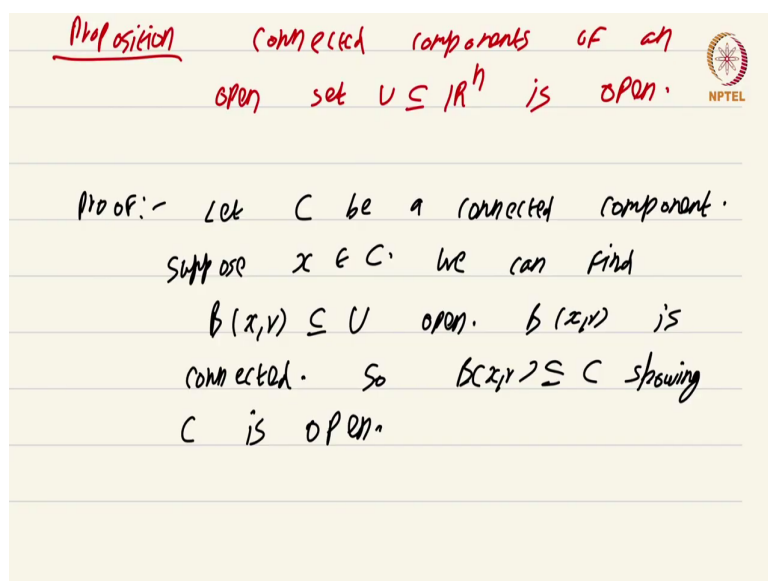 Proposition Connected components of an
open set U ⊆ ℝⁿ is open.
NPTEL
Proof:- Let C be a connected component.
Suppose x ∈ C. We can find
B(x,r) ⊆ U open. B(x,r) is
connected. So B(x,r) ⊆ C showing
C is open.